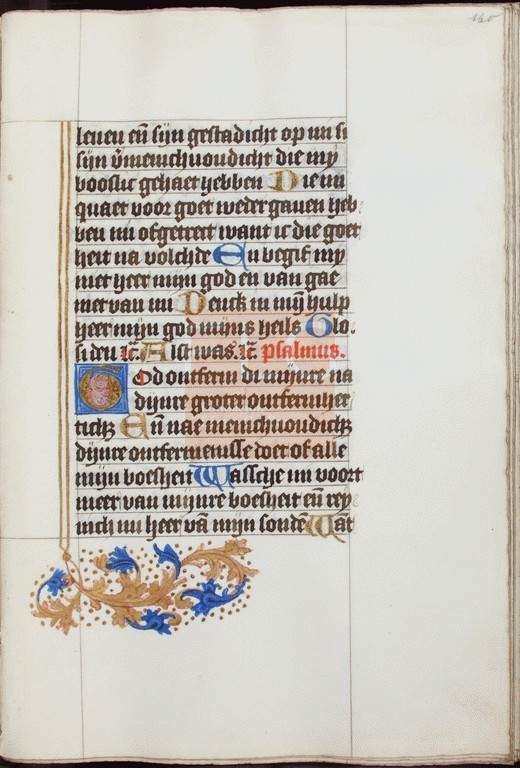 160
leuen eñ sijn gestadicht op mi si
sijn v̄menichuoudicht die my
booslic gehaet hebben Die mi
quaet voor goet weder gauen heb
ben mi ofgetrect want ic die goet
heit na volchde En begif my
niet heer mijn god en van gae
niet van mi Denck in mij̄ hulp
heer mijn god mijns heils Glo.
si den ic̄. Alst was. ic̄. psalmus.
God ontferm di mijnre na
dijnre groter ontfermher
tichz Eñ nae menichuoudichz
dijnre ontfermenisse doet of alle
mijn boesheit Wassche mi voort
meer van mijnre boesheit eñ rey
nich mi heer vā mijn sondē Wāt